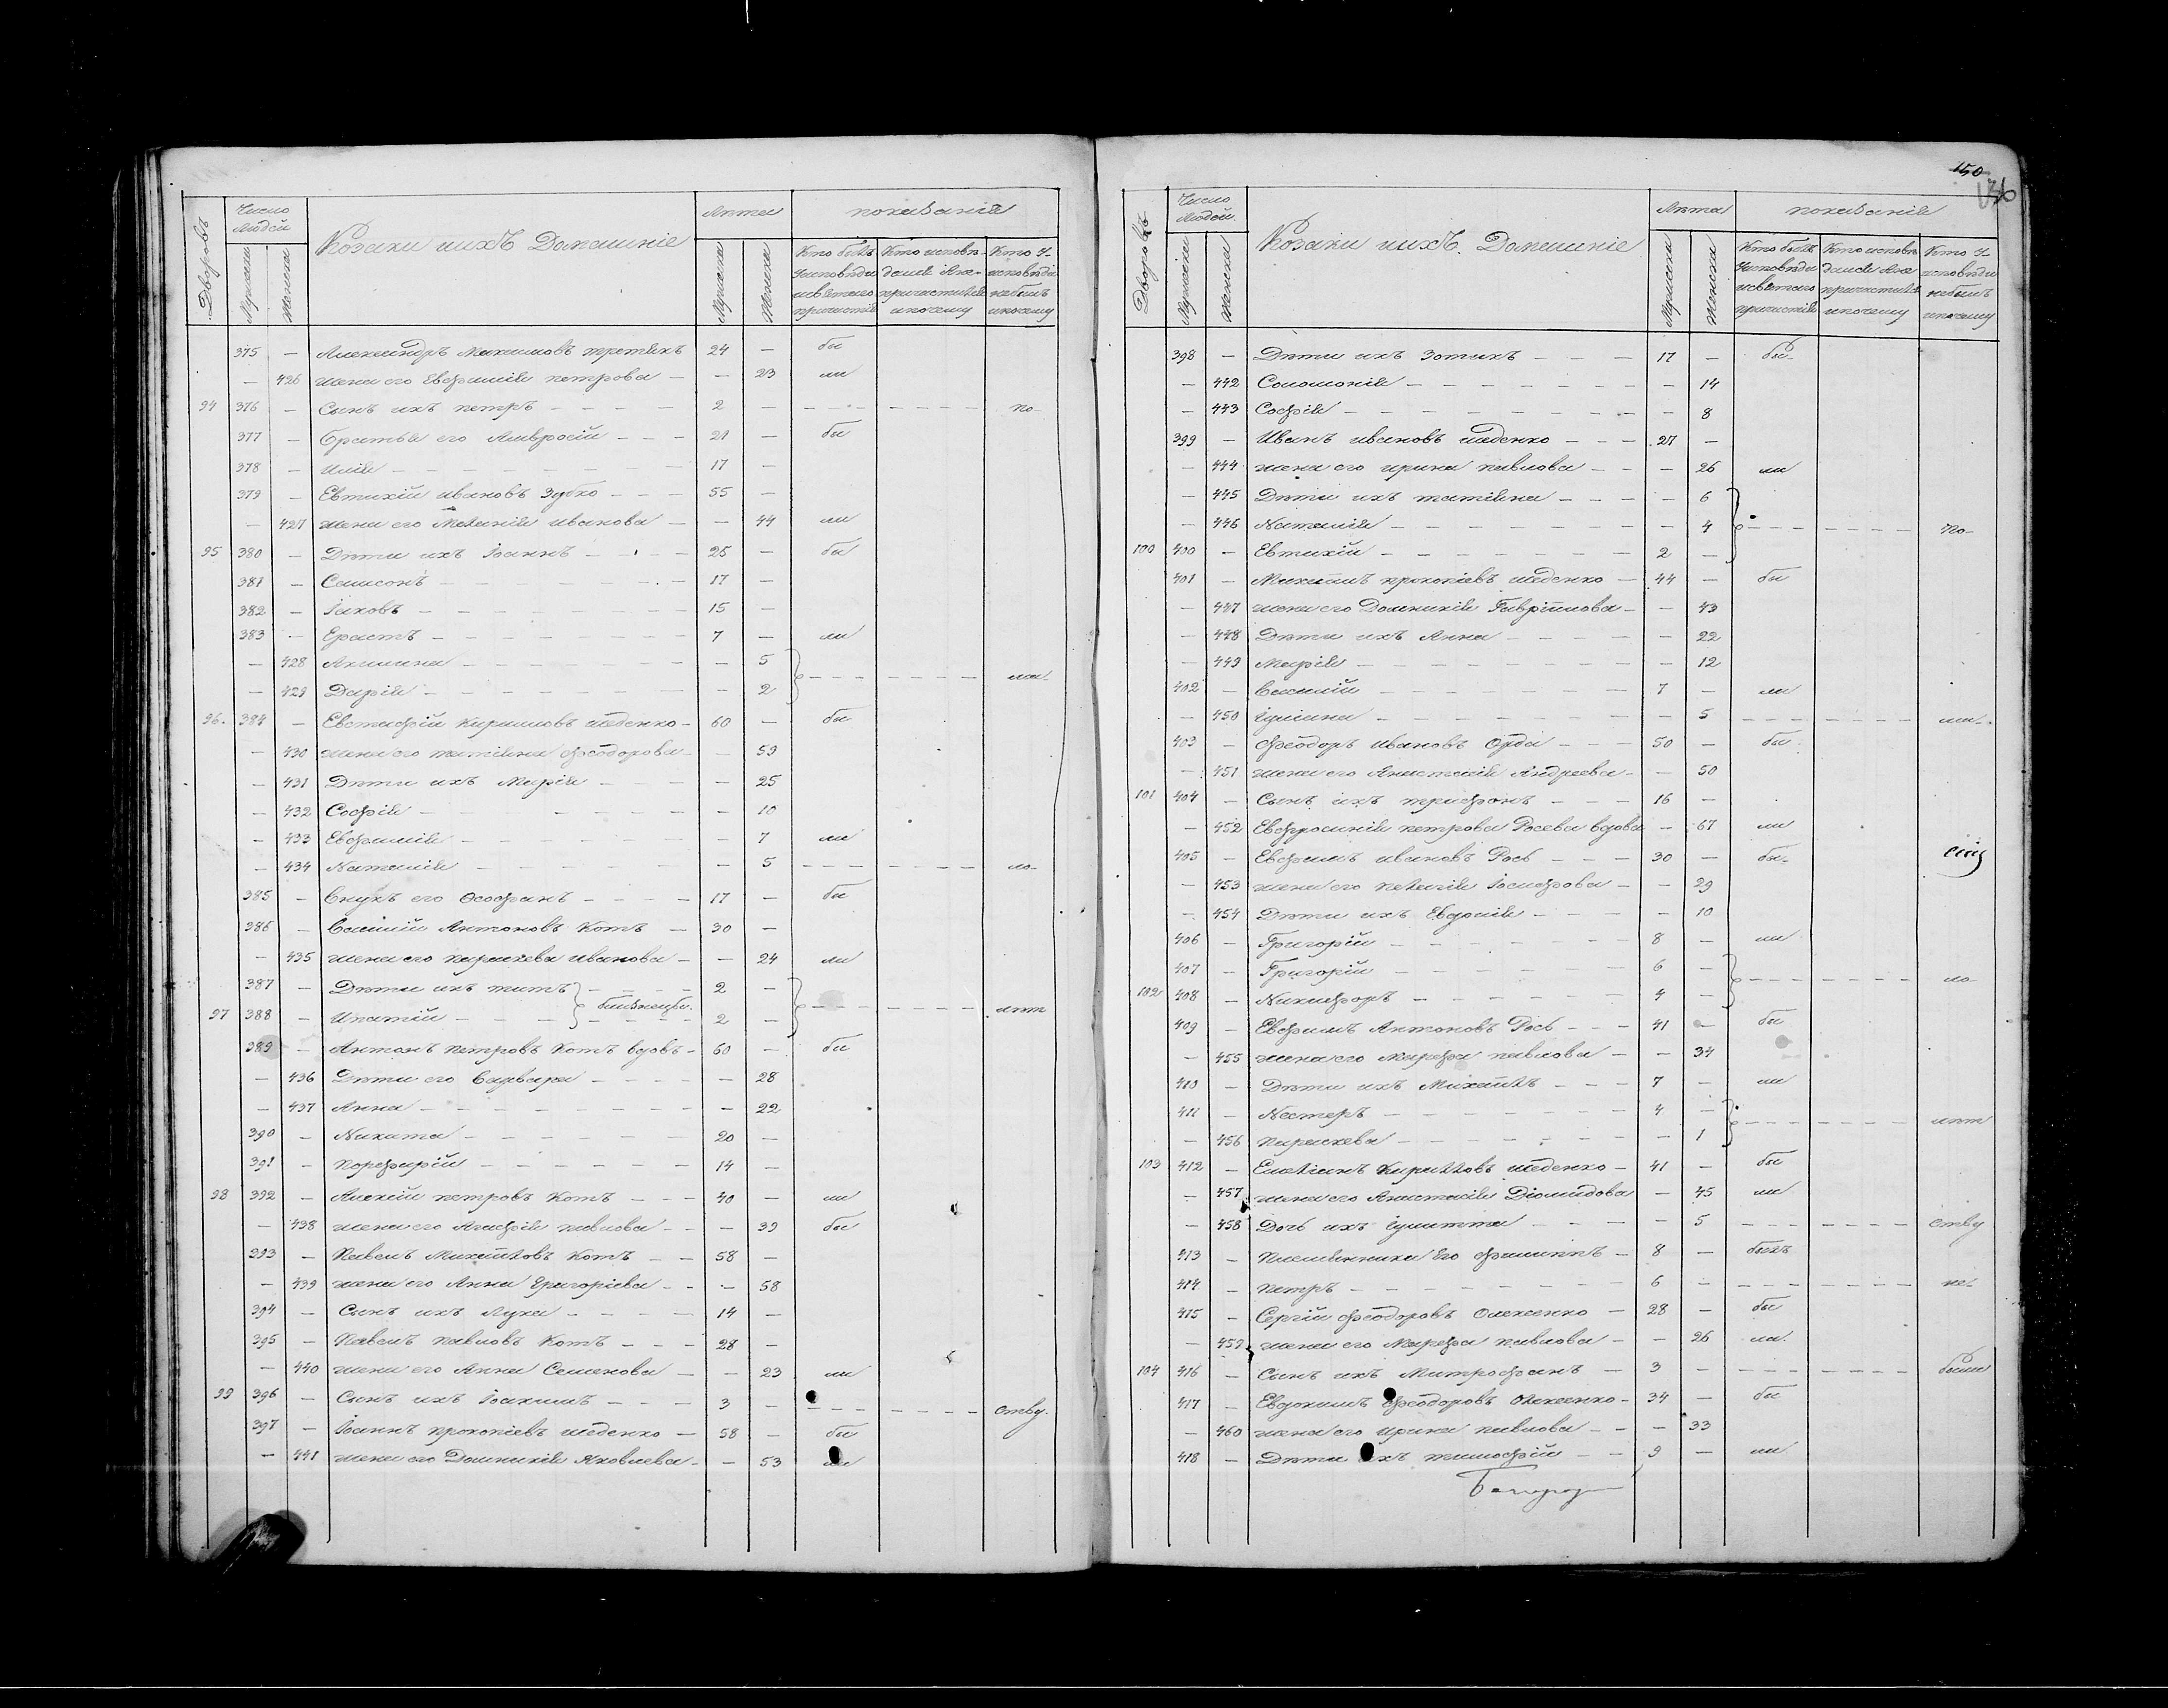 Дворовъ
Число Людей
Мужеска
Женска
Козаки иихъ Домашніе
Лѣта
Мужеска
Женска
показаніе
Кто былъ уисповѣди исвятаго причастія
Кто исповѣдался Ане причастился ипочему
Кто у исповѣди небылъ ипочему
375 — Александръ Максимовъ третякъ 24 — бы
— 426 жена его Евфимія петрова — — 23 ли
94 376 — Сынъ ихъ петръ — 2 — по-
377 — братья его Амвросій — 21 — бы
378 — Илія — 17 —
379 — Евтихій ивановъ Зубко — 55 —
— 427 жена его Меланія иванова — — 44 ли
95 380 — Дѣти ихъ Іоаннъ — 25 — бы
381 — Самсонъ — 17 —
382 — Іаковъ — 15 —
383 — Ерастъ — 7 — ли
— 428 Акилина — — 5
— 429 Дарія — — 2
96. 384 — Евстафій Кириловъ шеденко — 60 — бы
— 430 жена его татіяна феодорова — — 59
— 431 Дѣти ихъ Марія — — 25
— 432 Софія — — 10
— 433 Евфимія — — 7 ли
— 434 Наталія — — 5 ло-
385 — Внукъ его Ѳеофанъ — 17 — бы
386 — Василій Антоновъ Котъ — 30 —
— 435 жена его параскева иванова — — 24 ли
387 — Дѣти ихъ титъ — 2 —
близнецы
97 388 — Ипатій — 2 — лѣт
389 — Антонъ петровъ Котъ вдовъ — 60 — бы
— 436 Дѣти его Варвара — — 28
— 437 Анна — — 22
390 — Никита — 20 —
391 — Порфирій — 14 —
98 392 — Алексій петровъ Котъ — 40 — ли
— 438 жена его Агафія павлова — — 39 бы
393 — Павелъ Михайловъ Котъ — 58 —
— 439 жена его Анна Григоріева — — 58
394 — Сынъ ихъ Лука — 14 —
395 — Павелъ павловъ Котъ — 28 —
— 440 жена его Анна Семенова — — 23 ли
99 396 — Сынъ ихъ Іоакимъ — 3 — отву.
397 — Іоаннъ прокопіевъ шеденко — 58 — бы
— 441 жена его Домникія Яковлева — — 53 ли
150
Дворовъ
Число Людей.
Мужеска
Женска
Козаки иихъ. Домашніе
Лѣта
Мужеска
Женска
показаніе
Кто былъ уисповѣди исвятаго причастія
Кто исповѣдался Ане причастился ипочему
Кто у исповѣди небылъ ипочему
398 — Дѣти ихъ Зотикъ — 17 — бы-
— 442 Соломонія — — 14
— 443 Софія — — 8
399 — Иванъ ивановъ шеденко — 27 —
— 444 жена его ирина павлова — — 26 ли
— 445 Дѣти ихъ татіяна — — 6
— 446 Наталія — — 4 по-
100 400 — Евтихій — 2 —
401 — Михаилъ прокопіевъ шеденко — 44 — бы
— 447 жена его Домникія Гавріилова — — 43
— 448 Дѣти ихъ Анна — — 22
— 449 Марія — — 12
402 — Василій — 7 — ли
— 450 Іуліана — — 5
403 — феодоръ ивановъ Орда — 50 — бы
— 451 жена его Анастасія Андреева — — 50
101 404 — Сынъ ихъ трифонъ — 16 —
— 452 Евфросинія петрова Росева вдова — 67 ли
405 — Евфимъ ивановъ Рось — 30 — бы-
— 453 жена его пелагія Іосифова — — 29
— 454 Дѣти ихъ Евдокія — — 10
406 — Григорій — 8 — ли
407 — Григорій — 6 —
102 408 — Никифоръ — 4 — ло-
409 — Евфимъ Антоновъ Рось — 41 — бы
— 455 жена его Марфа павлова — — 34
410 — Дѣти ихъ Михаилъ — 7 — ли
411 — Несторъ — 4 — лѣт
— 456 параскева — — 1
103 412 — Емеліанъ Кирилловъ шеденко — 41 — бы
— 457 жена его Анастасія Діомидова — 45 ли
— 458 Дочь ихъ Іулитта — — 5 отву
413 — Племянники Его филиппъ — 8 — былъ
414 — петръ — 6 — не-
415 — Сергій феодоровъ Олексенко — 28 — бы
— 459 жена его Марфа павлова — — 26 ли
104 416 — Сынъ ихъ Митрофанъ — 3 — были
417 — Евдокимъ феодоровъ Олексенко — 34 — бы
— 460 жена его ирина павлова — — 33
418 — Дѣти ихъ тимофій — 9 — ли